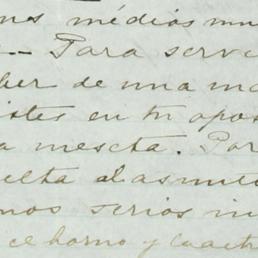 nos médios mu
-- Para serve
ber de una ma
istes en tu apos
a mescta. Por
uelta al asunto
mos serios in
el horno y cuatr